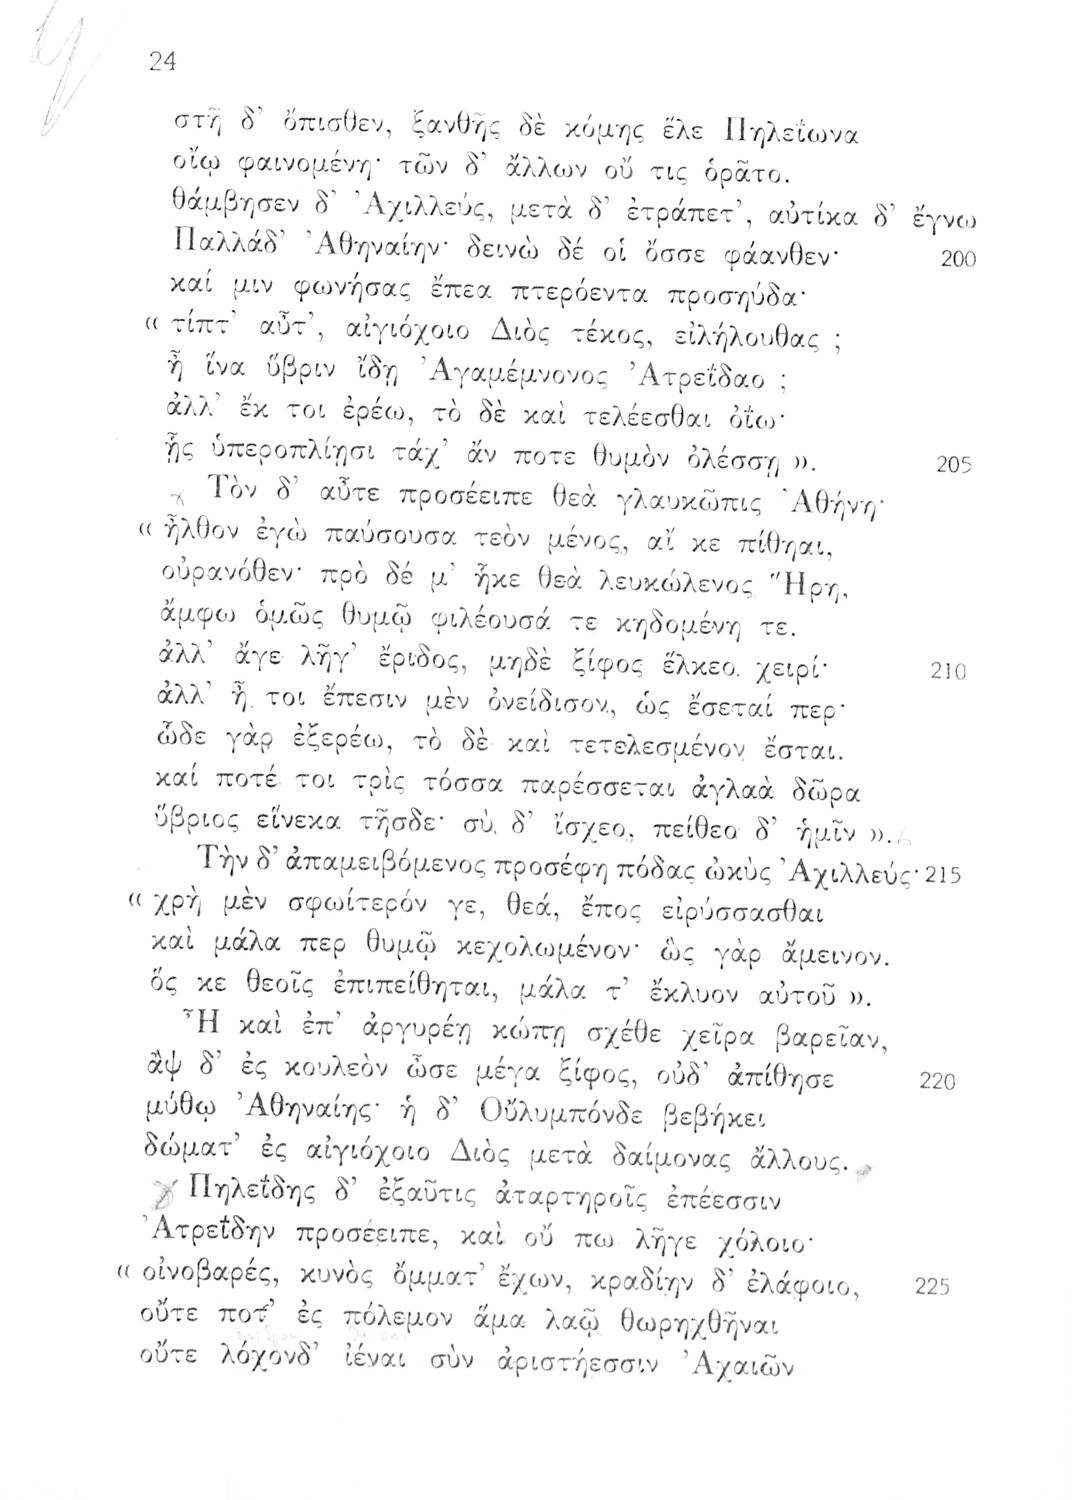 24
στῆ δ’ ὄπισθεν, ξανθῆς δὲ κόμης ἕλε Πηλεΐωνα
οἴῳ φαινομένη· τῶν δ’ ἄλλων οὔ τις ὁρᾶτο.
θάμβησεν δ’ Ἀχιλλεύς, μετὰ δ’ ἐτράπετ’, αὐτίκα δ’ ἔγνω
Παλλάδ’ Ἀθηναίην· δεινὼ δέ οἱ ὄσσε φάανθεν· 200
καί μιν φωνήσας ἔπεα πτερόεντα προσηύδα·
« τίπτ’ αὖτ’, αἰγιόχοιο Διὸς τέκος, εἰλήλουθας ;
ἦ ἵνα ὕβριν ἴδῃ Ἀγαμέμνονος Ἀτρεΐδαο ;
ἀλλ’ ἔκ τοι ἐρέω, τὸ δὲ καὶ τελέεσθαι ὀΐω·
ᾗς ὑπεροπλίῃσι τάχ’ ἄν ποτε θυμὸν ὀλέσσῃ ». 205
Τὸν δ’ αὖτε προσέειπε θεὰ γλαυκῶπις Ἀθήνη·
« ἦλθον ἐγὼ παύσουσα τεὸν μένος, αἴ κε πίθηαι,
οὐρανόθεν· πρὸ δέ μ’ ἧκε θεὰ λευκώλενος Ἥρη,
ἄμφω ὁμῶς θυμῷ φιλέουσά τε κηδομένη τε.
ἀλλ’ ἄγε λῆγ’ ἔριδος, μηδὲ ξίφος ἕλκεο χειρί· 210
ἀλλ’ ἦ τοι ἔπεσιν μὲν ὀνείδισον, ὡς ἔσεταί περ·
ὧδε γὰρ ἐξερέω, τὸ δὲ καὶ τετελεσμένον ἔσται.
καί ποτέ τοι τρὶς τόσσα παρέσσεται ἀγλαὰ δῶρα
ὕβριος εἵνεκα τῆσδε· σὺ δ’ ἴσχεο, πείθεο δ’ ἡμῖν ».
Τὴν δ’ ἀπαμειβόμενος προσέφη πόδας ὠκὺς Ἀχιλλεύς· 215
« χρὴ μὲν σφωΐτερόν γε, θεά, ἔπος εἰρύσσασθαι
καὶ μάλα περ θυμῷ κεχολωμένον· ὣς γὰρ ἄμεινον.
ὅς κε θεοῖς ἐπιπείθηται, μάλα τ’ ἔκλυον αὐτοῦ ».
Ἦ καὶ ἐπ’ ἀργυρέῃ κώπῃ σχέθε χεῖρα βαρεῖαν,
ἂψ δ’ ἐς κουλεὸν ὦσε μέγα ξίφος, οὐδ’ ἀπίθησε 220
μύθῳ Ἀθηναίης· ἡ δ’ Οὔλυμπόνδε βεβήκει
δώματ’ ἐς αἰγιόχοιο Διὸς μετὰ δαίμονας ἄλλους.
Πηλεΐδης δ’ ἐξαῦτις ἀταρτηροῖς ἐπέεσσιν
Ἀτρεΐδην προσέειπε, καὶ οὔ πω λῆγε χόλοιο·
« οἰνοβαρές, κυνὸς ὄμματ’ ἔχων, κραδίην δ’ ἐλάφοιο, 225
οὔτε ποτ’ ἐς πόλεμον ἅμα λαῷ θωρηχθῆναι
οὔτε λόχονδ’ ἰέναι σὺν ἀριστήεσσιν Ἀχαιῶν